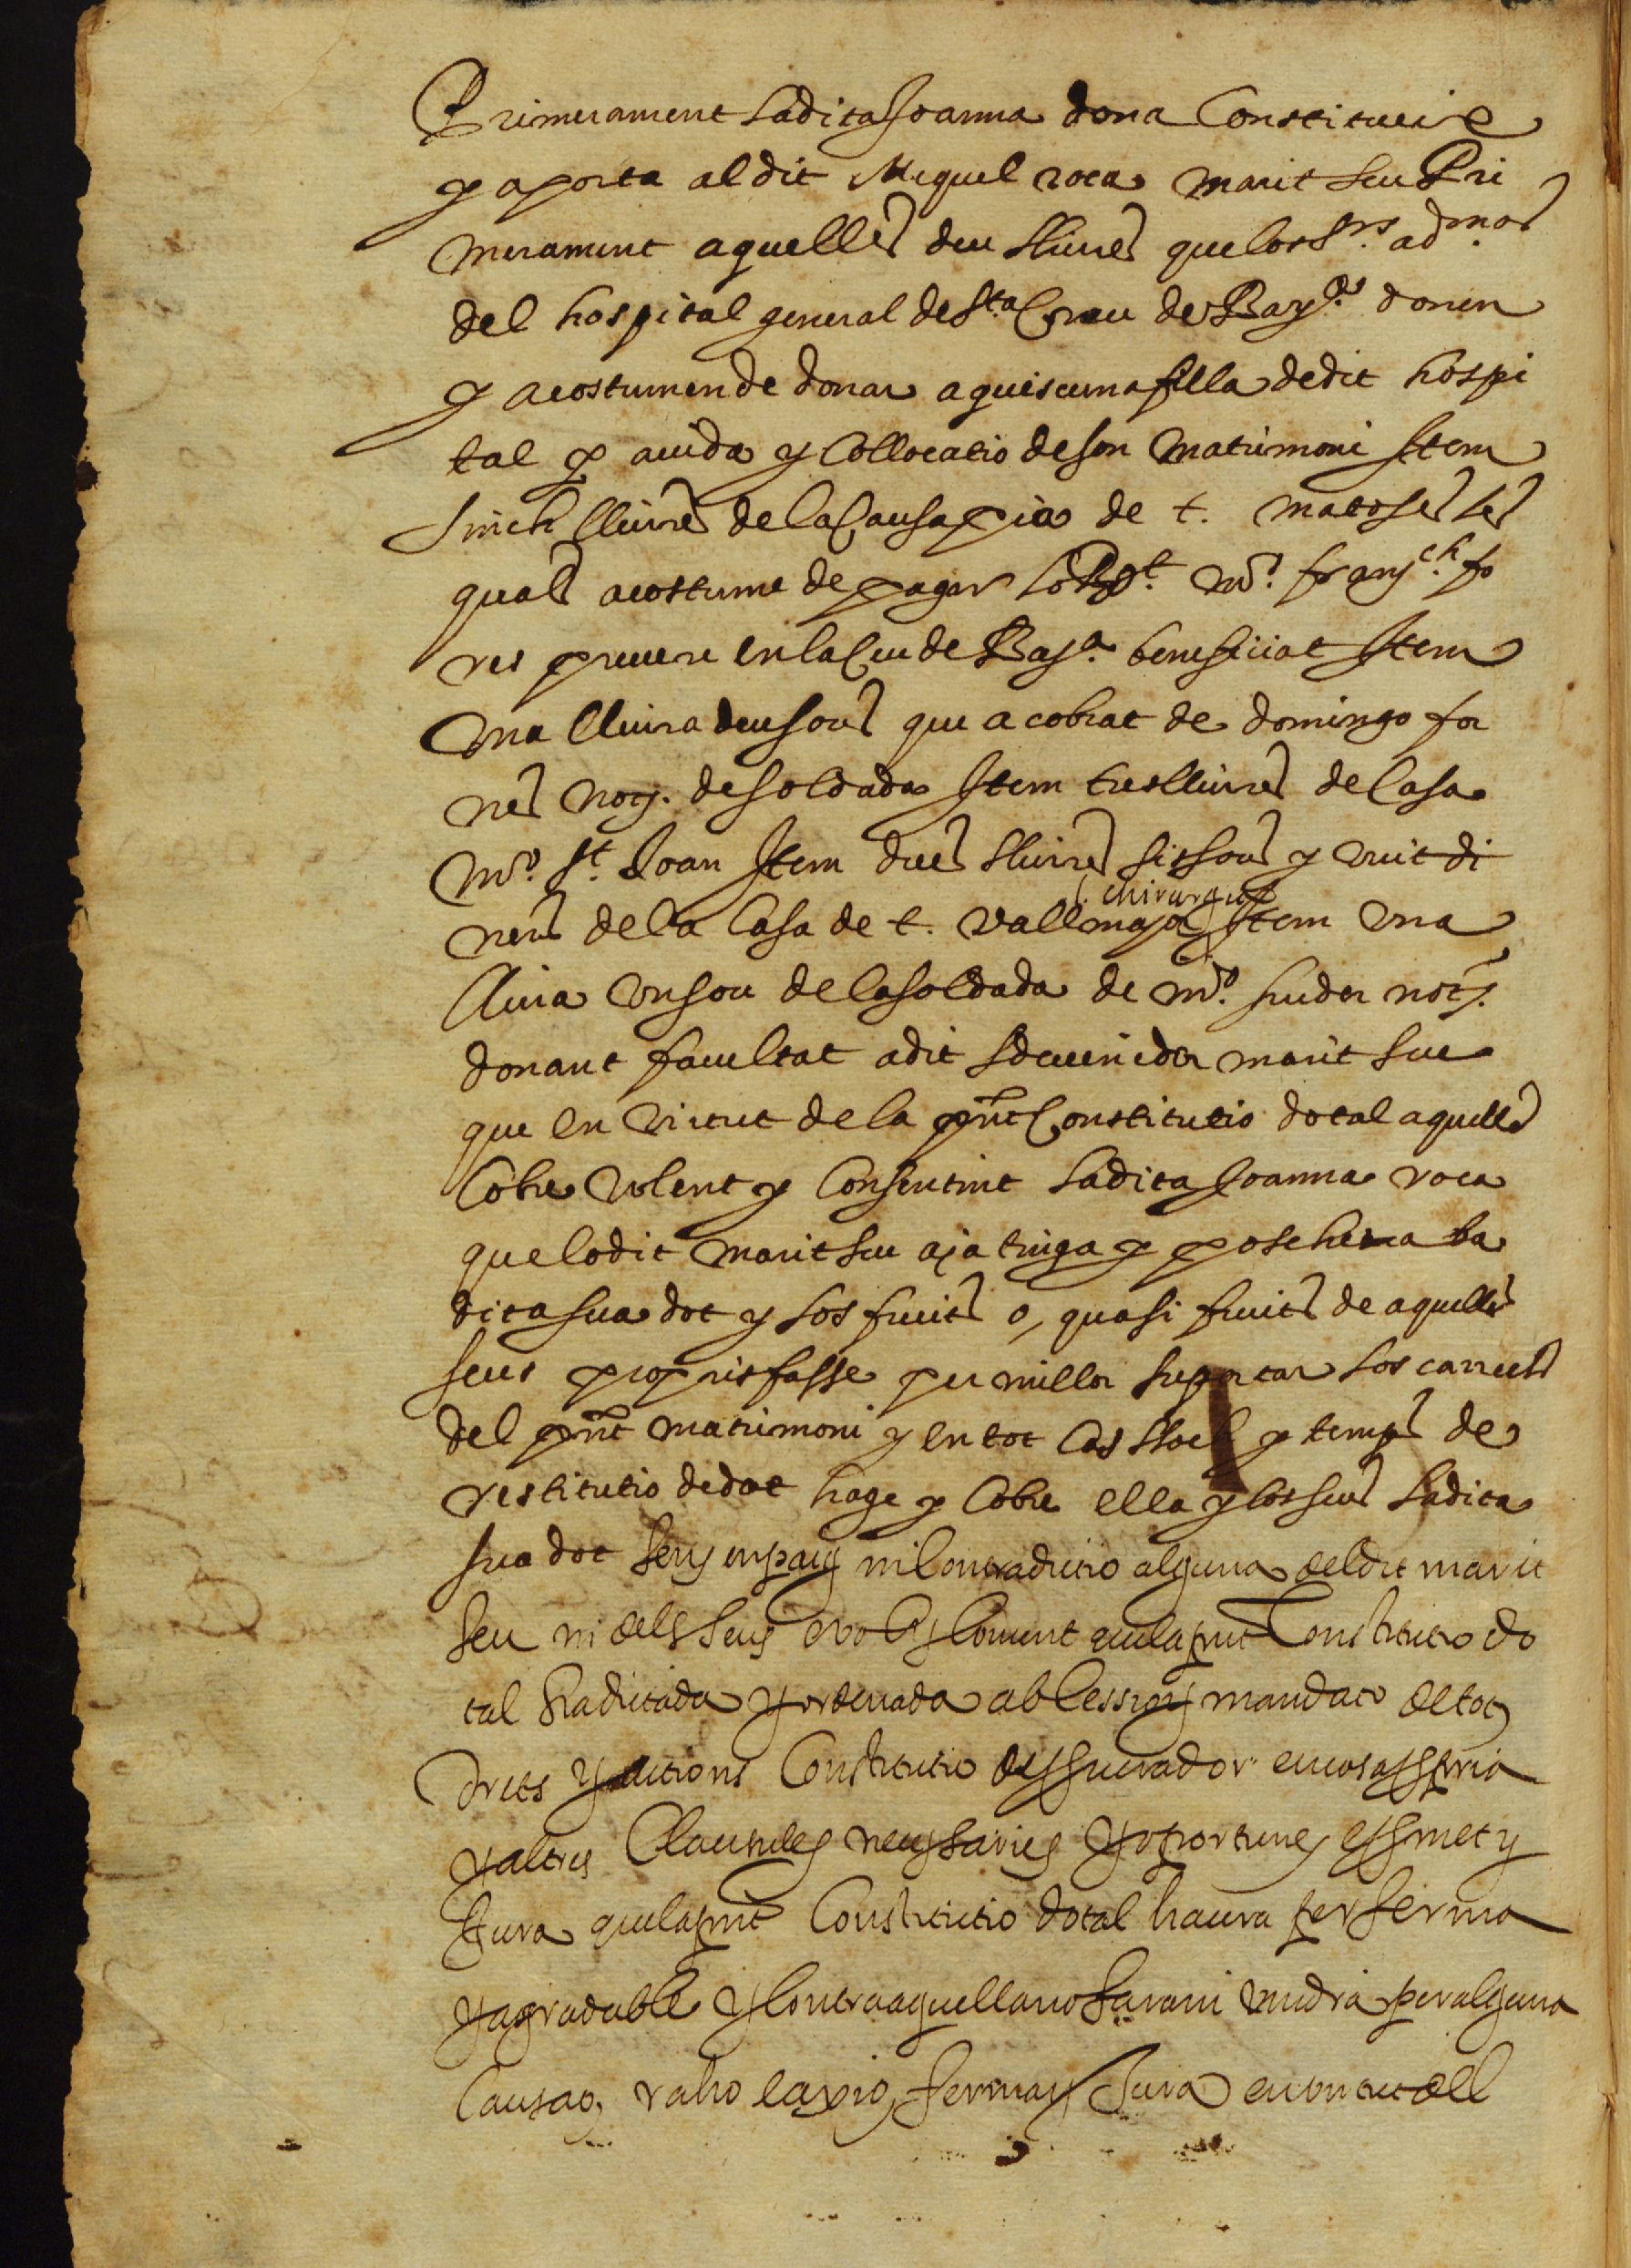 Primerament la dita Joanna dona Constitueix
y aporta al dit Miquel roca marit seu Pri
merament aquelles deu lliures que los Srs. admors
del hospital general de Sta. Creu de Barña. donen
y acostumen de donar a quiscuna filla de dit hospi
tal p aiuda y Collocatio de son matrimoni Item
Sinch lliures de la Causa pia de t. matoses les
quals acostume de pagar lo Rt. mo. franch. fo
res prevere en la Seu de Bara. beneficiat Item
Una lliura deu sous que a cobrat de domingo for
nes noty. de soldada Item tres lliures de Casa
mo. St. Joan Item dues lliures sis sous y vuit di
ners de la Casa de t. vallmajor chirurgia Item una
lliura un sou de la soldada de mo. suder noty.
donant facultat a dit sdevenidor marit seu
que en virtut de la pnt Constitutio dotal aquelles
Cobre volent y Consentint la dita Joanna roca
que lo dit marit seu aja tinga y poscheia la
dita sua dot y los fruits o, quasi fruits de aquelles
seus propris fasse per millor suportar los carrechs
del pnt matrimoni y en tot Cas lloch y temps de
restitutio de dot hage y Cobre ella y los seus la dita
sua dot sens empaig ni Contradictio alguna del dit marit
seu ni dels seus convent que la pnt Constitutio do
tal ordenada ab Cessions mandato de tots
drets y actions Constitutio de procurador en cosa propria
y altres Clausules necessaries y oportunes y promet y
Jura que la pnt Constitutio dotal haura per ferma
y agradable y Contra aquella no fara ni vindra per alguna
Causa o, raho ferma y Jura en virtut dell